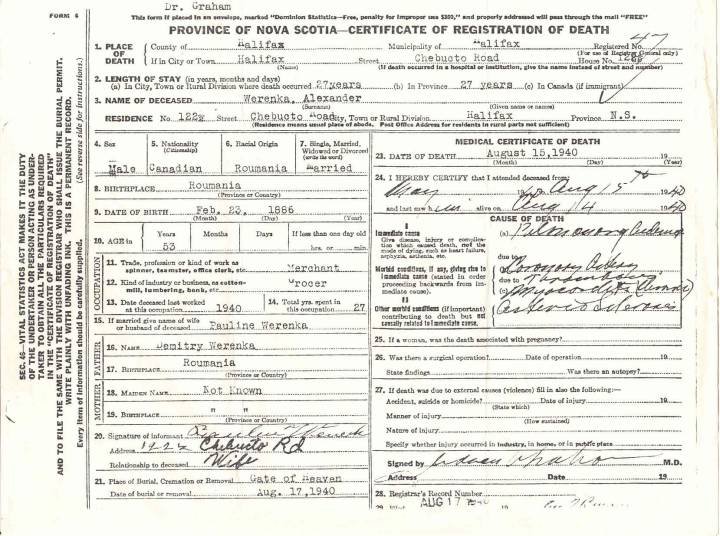 Dr. Graham
FORM 6
This form if placed in an envelope, marked "Dominion Statistics—Free, penalty for improper use $300," and properly addressed will pass through the mail "FREE"
PROVINCE OF NOVA SCOTIA—CERTIFICATE OF REGISTRATION OF DEATH
47
1. PLACE OF DEATH
County of Halifax Municipality of Halifax Registered No.
(For use of Registrar General only)
If in City or Town Halifax Street Chebucto Road House No.
(Name) (If death occurred in a hospital or institution, give the name instead of street and number)
2. LENGTH OF STAY (in years, months and days)
(a) In City, Town or Rural Division where death occurred 27years (b) In Province 27 years (c) In Canada (if immigrant)
3. NAME OF DECEASED Werenka, Alexander
(Surname) (Given name or names)
RESIDENCE No. 122½ Street Chebucto Road City, Town or Rural Division Halifax Province N.S.
(Residence means usual place of abode. Post Office Address for residents in rural parts not sufficient)
SEC. 46—VITAL STATISTICS ACT MAKES IT THE DUTY
OF THE UNDERTAKER OR PERSON ACTING AS UNDER-
TAKER TO OBTAIN ALL THE PARTICULARS REQUIRED
IN THE "CERTIFICATE OF REGISTRATION OF DEATH"
AND TO FILE THE SAME WITH THE DIVISION REGISTRAR WHO SHALL ISSUE THE BURIAL PERMIT.
WRITE PLAINLY WITH UNFADING INK. THIS IS A PERMANENT RECORD.
Every item of information should be carefully supplied. (See reverse side for instructions.)
4. Sex 5. Nationality 6. Racial Origin 7. Single, Married,
(Citizenship) Widowed or Divorced
(write the word)
Male Canadian Roumania Married
8. BIRTHPLACE Roumania
(Province or Country)
9. DATE OF BIRTH Feb. 23, 1886
(Month) (Day) (Year)
10. AGE in Years Months Days If less than one day old
53 hrs. or min.
OCCUPATION
11. Trade, profession or kind of work as
spinner, teamster, office clerk, etc. Merchant
12. Kind of industry or business, as cotton-
mill, lumbering, bank, etc. Grocer
13. Date deceased last worked
at this occupation 1940
14. Total yrs. spent in
this occupation 27
15. If married give name of wife
or husband of deceased Pauline Werenka
FATHER
16. NAME Demitry Werenka
17. BIRTHPLACE Roumania
(Province or Country)
MOTHER
18. MAIDEN NAME Not Known
19. BIRTHPLACE " "
(Province or Country)
20. Signature of informant Pauline Werenka
Address 122½ Chebucto Rd
Relationship to deceased Wife
21. Place of Burial, Cremation or Removal Gate of Heaven
Date of burial or removal Aug. 17,1940
MEDICAL CERTIFICATE OF DEATH
23. DATE OF DEATH August 15,1940 19
(Month) (Day) (Year)
24. I HEREBY CERTIFY that I attended deceased from
May 1940 to Aug 15th 1940
and last saw him alive on Aug 14 1940
CAUSE OF DEATH
I
Immediate cause
Give disease, injury or complica-
tion which caused death, not the
mode of dying, such as heart failure,
asphyxia, asthenia, etc.
(a) Pulmonary
due to
Morbid conditions, if any, giving rise to
immediate cause (stated in order
proceeding backwards from im-
mediate cause).
(b) Coronary
due to
(c)
II
Other morbid conditions (if important)
contributing to death but not
causally related to immediate cause.
25. If a woman, was the death associated with pregnancy?
26. Was there a surgical operation? Date of operation 19
State findings Was there an autopsy?
27. If death was due to external causes (violence) fill in also the following:—
Accident, suicide or homicide? Date of injury 19
(State which)
Manner of injury
(How sustained)
Nature of injury
Specify whether injury occurred in industry, in home, or in public place
Signed by M.D.
Address Date 19
28. Registrar's Record Number
AUG 17 1940 19